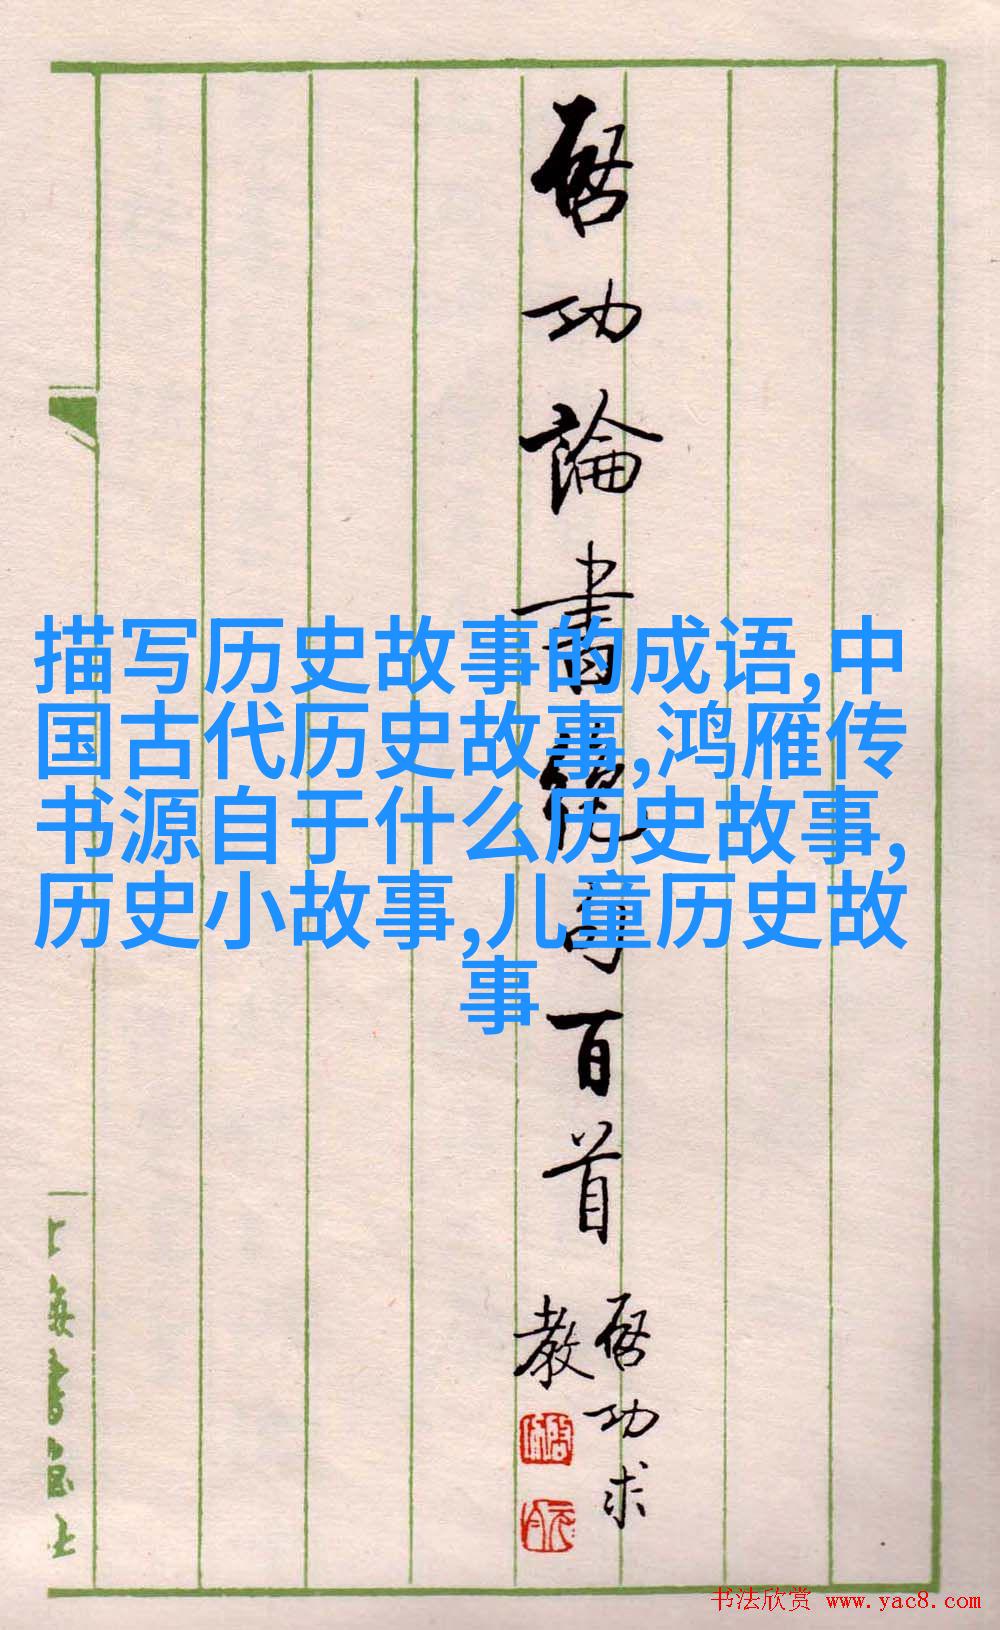 启功論書絕句百首
启功求
教
描写历史故事的成语,中
国古代历史故事,鸿雁传
书源自于什么历史故事,
历史小故事,儿童历史故
事
上海書画社
书法欣赏 www.yac8.com